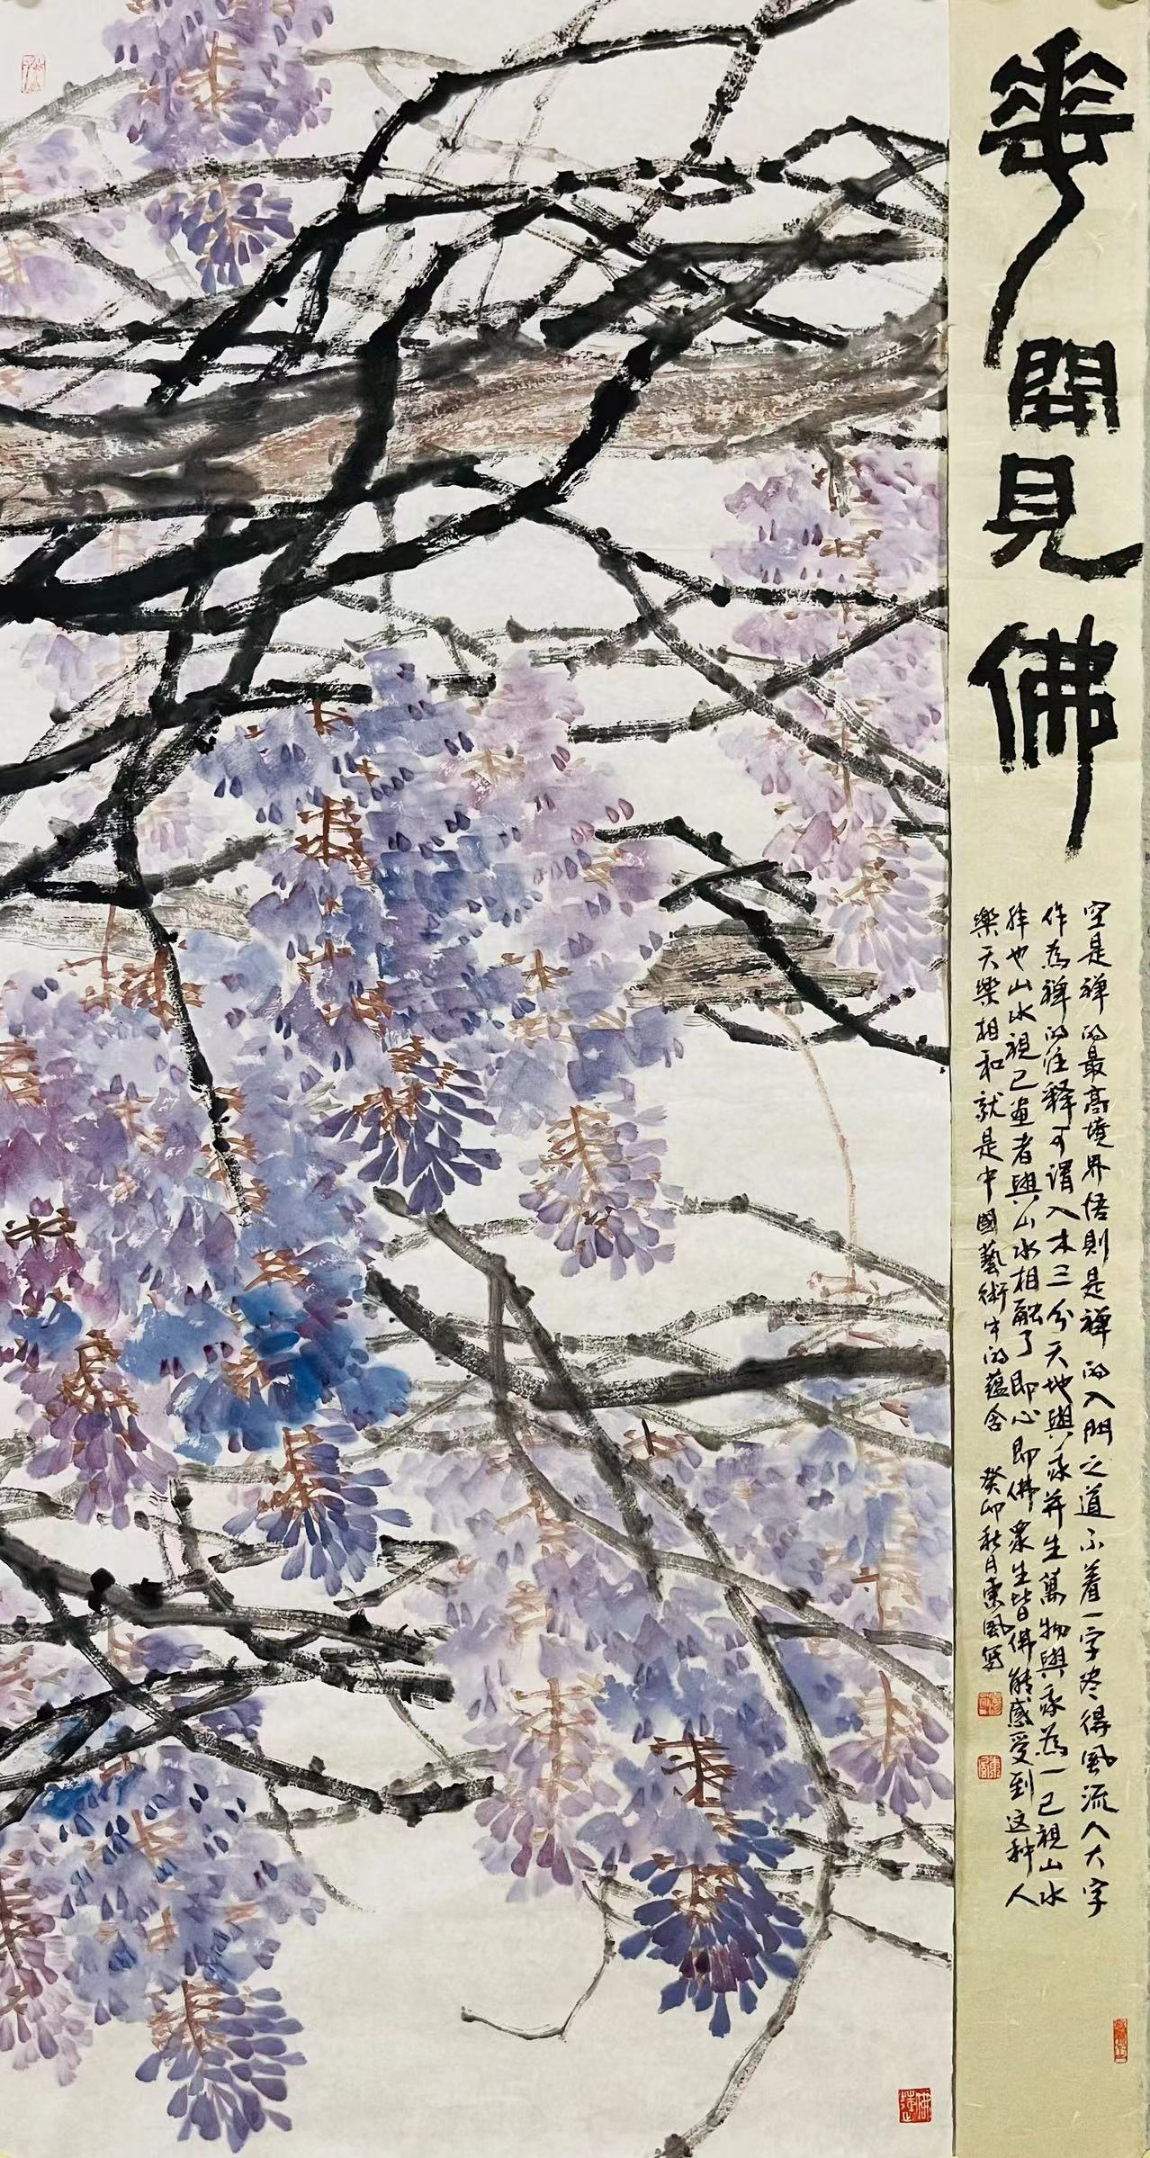 華開見佛
空是禅的最高境界悟則是禅的入門之道不着一字尽得風流八大字
作為禅的注释可謂入木三分天地與我并生萬物與我為一己視山水
猶山水視己画者與山水相融了即心即佛眾生皆佛能感受到这种人
樂天樂相和就是中國藝術中的蕴含
癸卯秋月東風寫